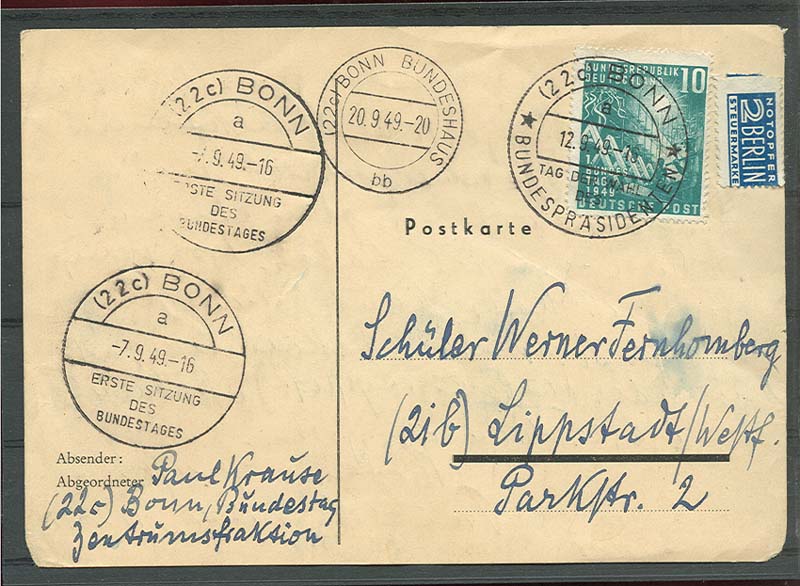 (22c) BONN
a
-7.9.49.-16
ERSTE SITZUNG
DES
BUNDESTAGES
(22c) BONN BUNDESHAUS
20.9.49.-20
bb
(22c) BONN
a
12.9.49.-16
TAG DER WAHL
DES
BUNDESPRÄSIDENTEN
BUNDESREPUBLIK
DEUTSCHLAND
10
BUNDES
TAG
1949
DEUTSCHE POST
NOTOPFER
2 BERLIN
STEUERMARKE
Postkarte
(22c) BONN
a
-7.9.49.-16
ERSTE SITZUNG
DES
BUNDESTAGES
Schüler Werner Fernhomberg
(21b) Lippstadt/Westf.
Parkstr. 2
Absender:
Abgeordneter Paul Krause
(22c) Bonn, Bundestag
Zentrumsfraktion